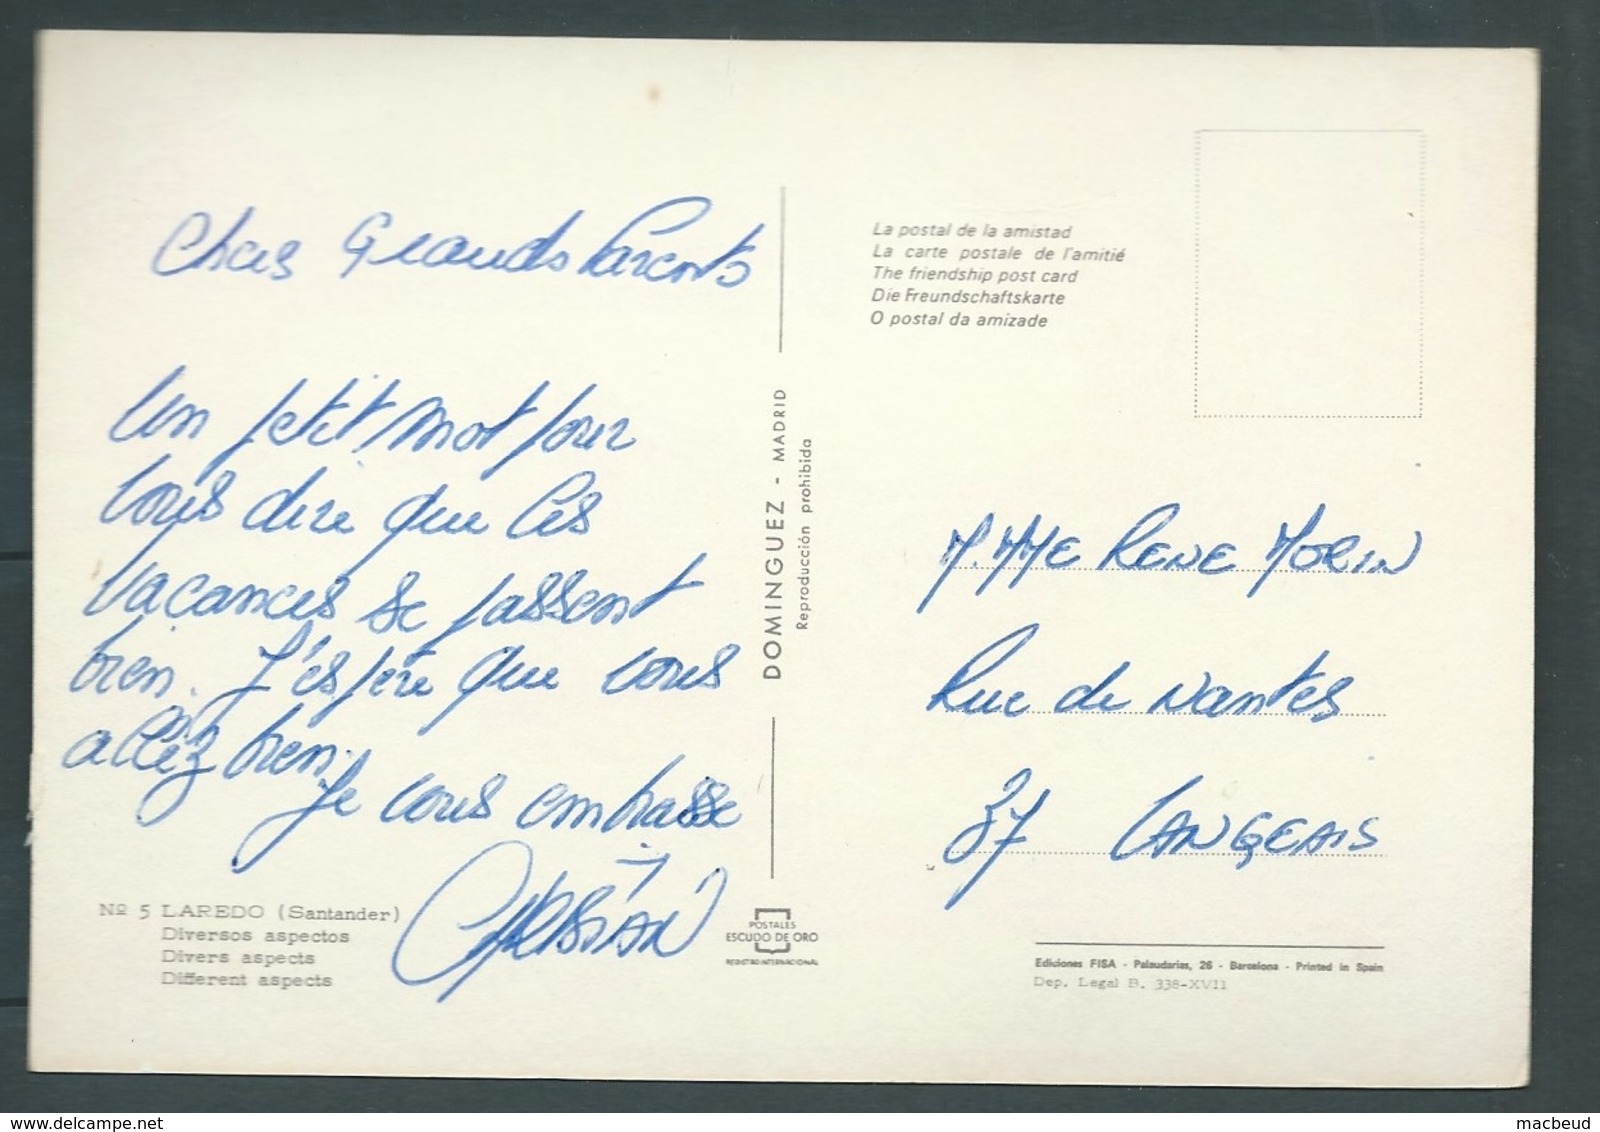 Chers Grands Parents
Un petit mot pour
vous dire que les
vacances se passent
bien. J'espère que vous
allez bien.
Je vous embrasse
Christian
Nº 5 LAREDO (Santander)
Diversos aspectos
Divers aspects
Different aspects
DOMINGUEZ - MADRID
Reproducción prohibida
POSTALES
ESCUDO DE ORO
REGISTRO INTERNACIONAL
La postal de la amistad
La carte postale de l'amitié
The friendship post card
Die Freundschaftskarte
O postal da amizade
M. MME RENE MORIN
Rue de Nantes
37 LANGEAIS
Ediciones FISA - Palaudarias, 26 - Barcelona - Printed in Spain
Dep. Legal B. 338-XVII
macbeud